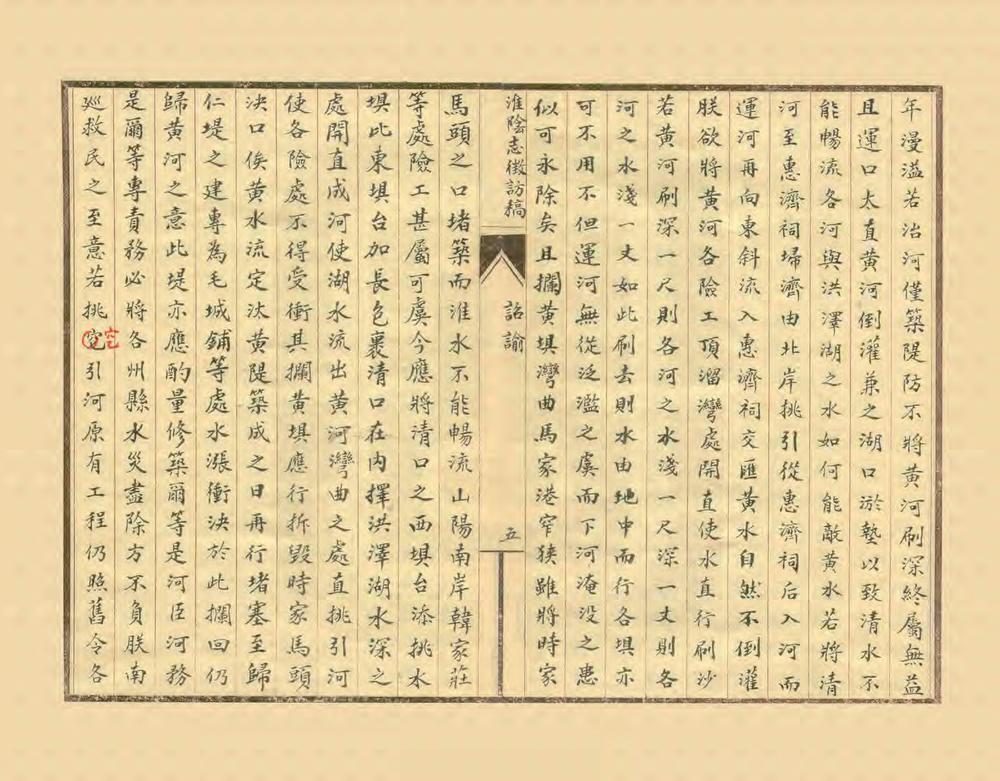 年漫溢若治河僅築隄防不將黄河刷深終屬無益
且運口太直黄河倒灌兼之湖口淤墊以致清水不
能暢流各河與洪澤湖之水如何能敵黄水若將清
河至惠濟祠埽濟由北岸挑引從惠濟祠后入河而
運河再向東斜流入惠濟祠交匯黄水自然不倒灌
朕欲將黄河各險工頂溜灣處開直使水直行刷沙
若黄河刷深一尺則各河之水淺一尺深一丈則各
河之水淺一丈如此刷去則水由地中而行各埧亦
可不用不但運河無從泛濫之虞而下河淹没之患
似可永除矣且攔黄埧灣曲馬家港窄狹雖將時家
淮陰志徵訪稿
詔諭
五
馬頭之口堵築而淮水不能暢流山陽南岸韓家莊
等處險工甚屬可虞今應將清口之西埧台添挑水
埧此東埧台加長包裹清口在内擇洪澤湖水深之
處開直成河使湖水流出黄河灣曲之處直挑引河
使各險處不得受衝其攔黄埧應行拆毁時家馬頭
决口俟黄水流定汰黄隄築成之日再行堵塞至歸
仁堤之建專為毛城鋪等處水漲衝决於此攔回仍
歸黄河之意此堤亦應酌量修築爾等是河臣河務
是爾等專責務必將各州縣水災盡除方不負朕南
廵救民之至意若挑穵引河原有工程仍照舊令各